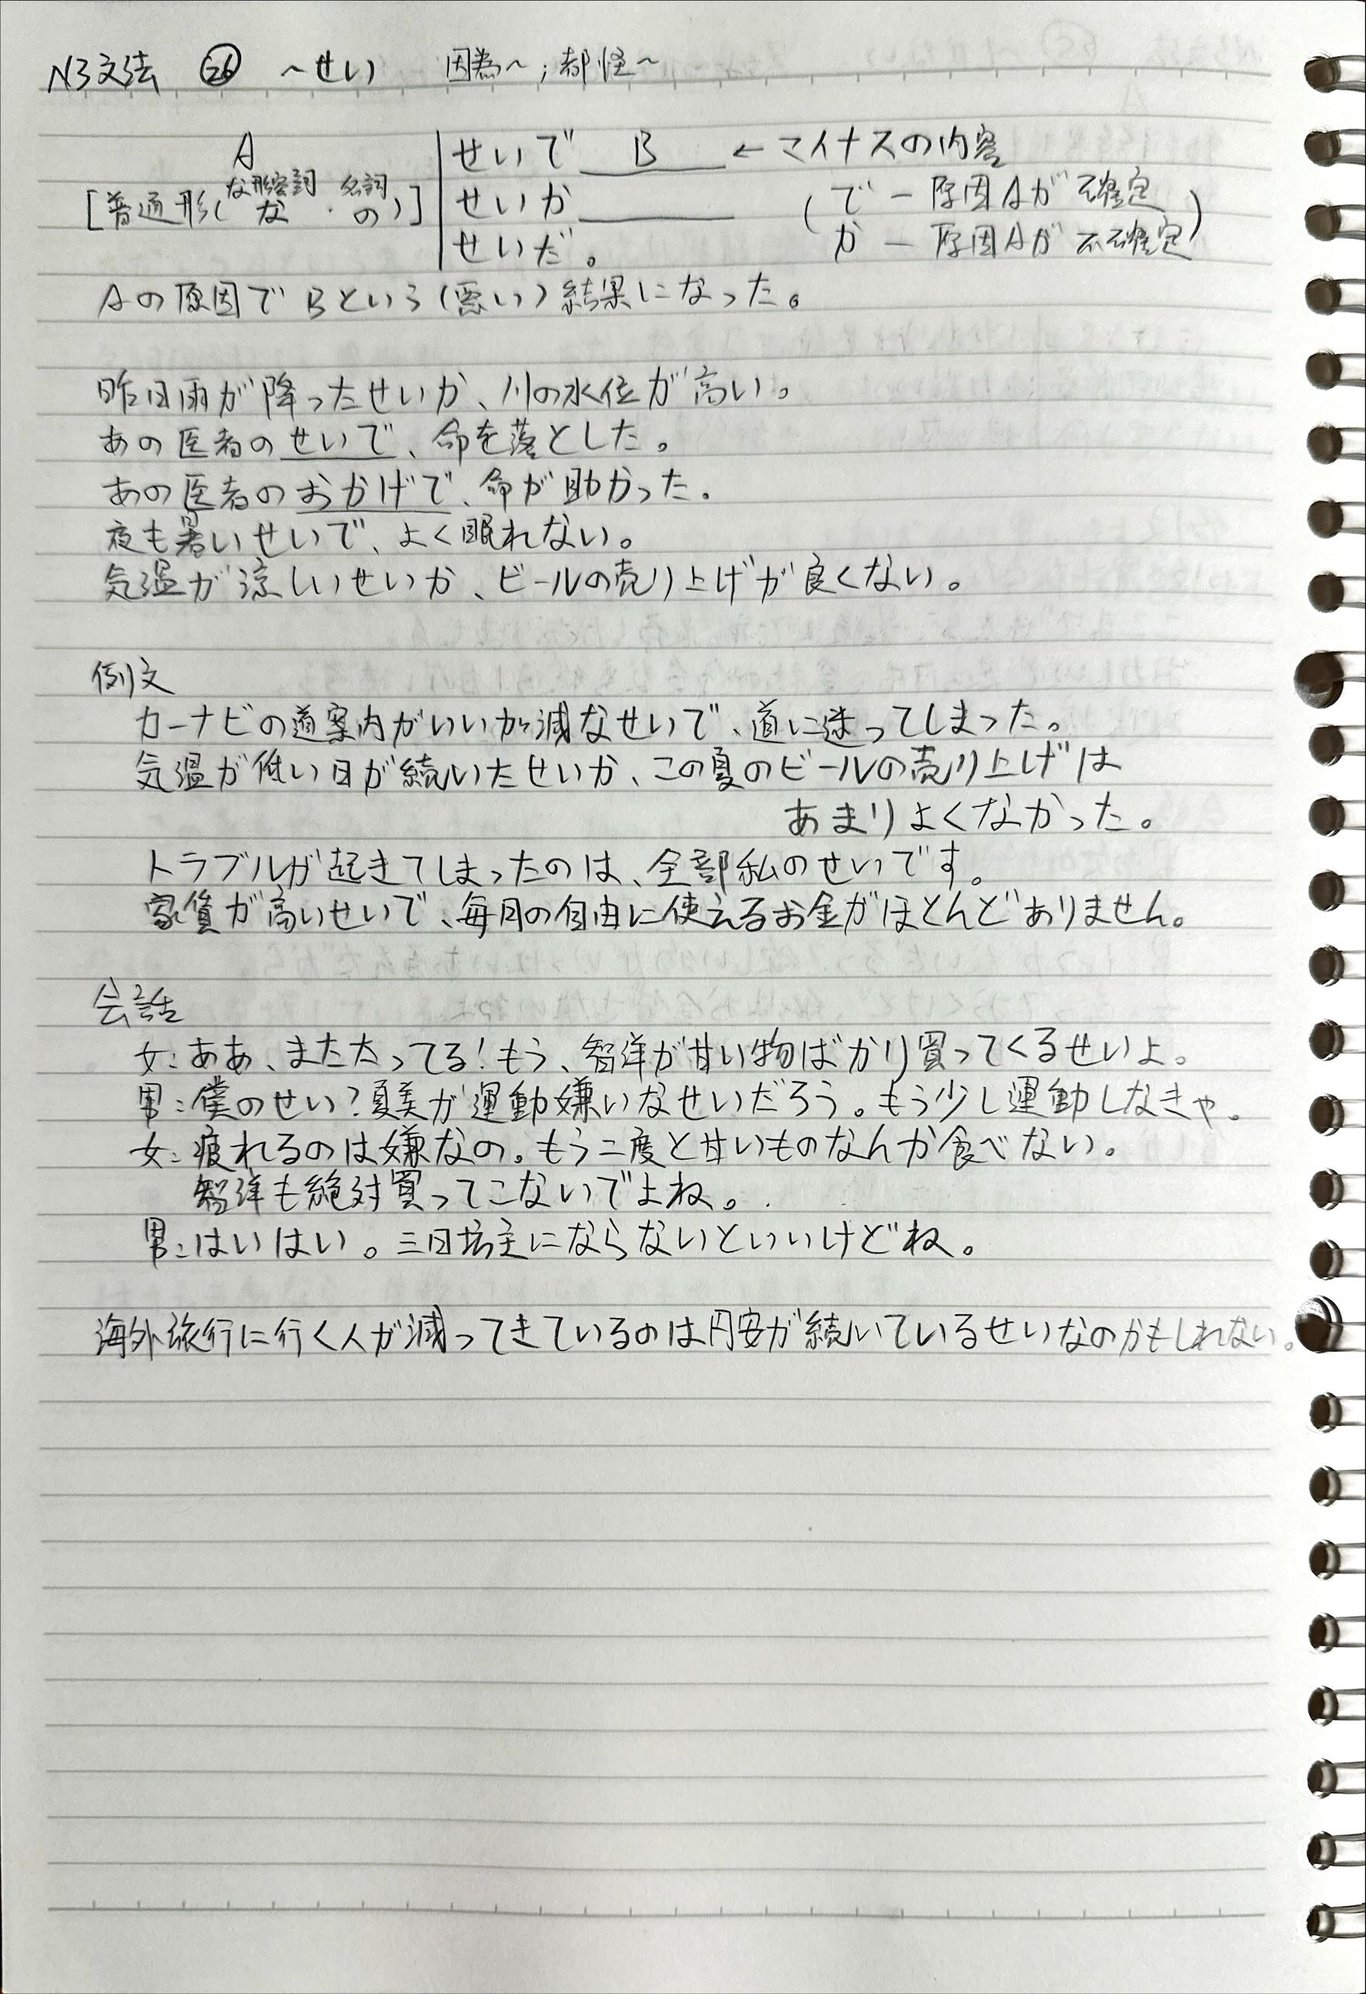 N3文法 ㉖ ～せい 因為～；都怪～
A
せいで B ← マイナスの内容
な形容詞 名詞
[普通形(な・の)] せいか (で － 原因Aが確定
せいだ。 か － 原因Aが不確定)
Aの原因でBという(悪い)結果になった。
昨日雨が降ったせいか、川の水位が高い。
あの医者のせいで、命を落とした。
あの医者のおかげで、命が助かった。
夜も暑いせいで、よく眠れない。
気温が涼しいせいか、ビールの売り上げが良くない。
例文
カーナビの道案内がいい加減なせいで、道に迷ってしまった。
気温が低い日が続いたせいか、この夏のビールの売り上げは
あまりよくなかった。
トラブルが起きてしまったのは、全部私のせいです。
家賃が高いせいで、毎月の自由に使えるお金がほとんどありません。
会話
女：ああ、また太ってる！もう、智洋が甘い物ばかり買ってくるせいよ。
男：僕のせい？夏美が運動嫌いなせいだろう。もう少し運動しなきゃ。
女：疲れるのは嫌なの。もう二度と甘いものなんか食べない。
智洋も絶対買ってこないでよね。
男：はいはい。三日坊主にならないといいけどね。
海外旅行に行く人が減ってきているのは円安が続いているせいなのかもしれない。